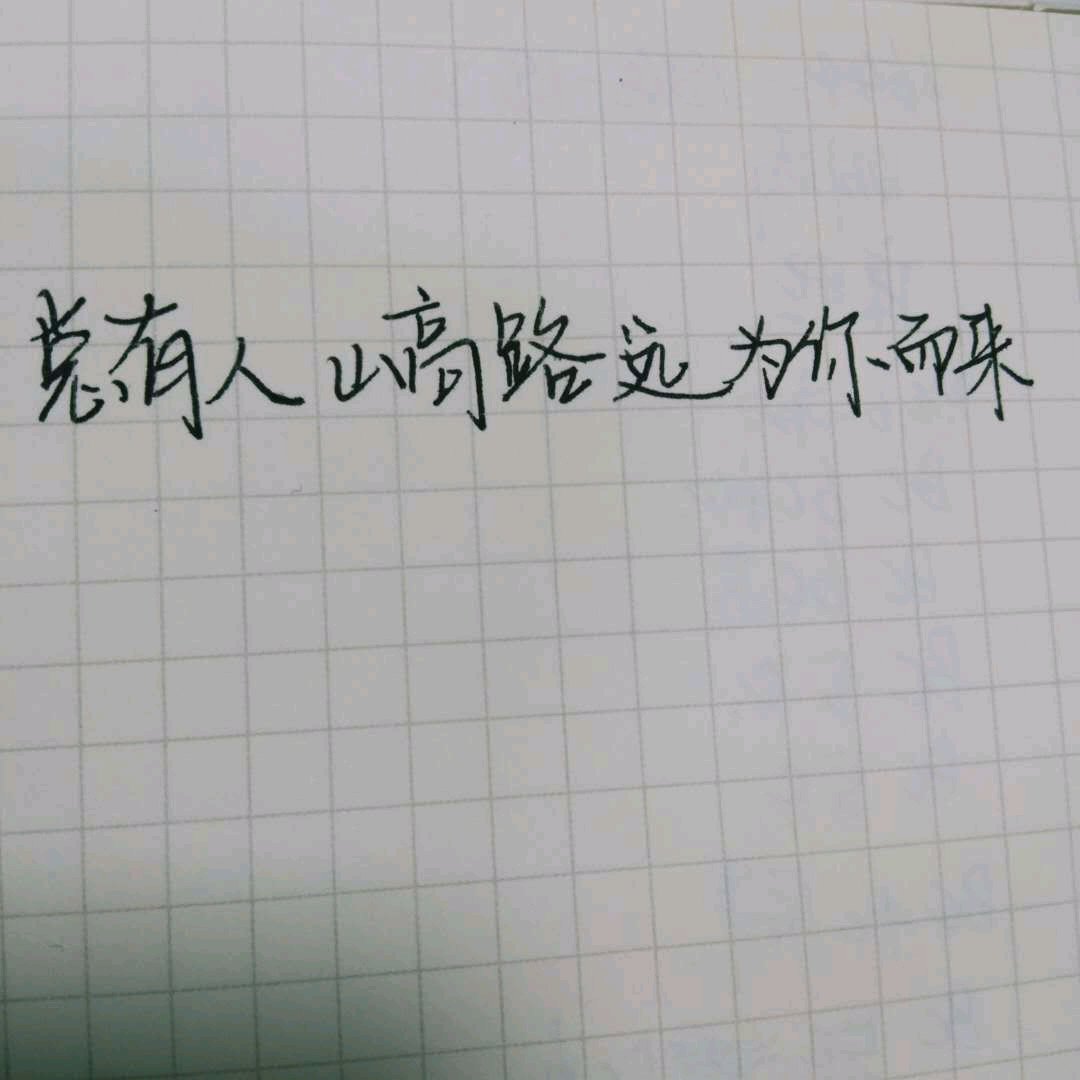 总有人山高路远为你而来